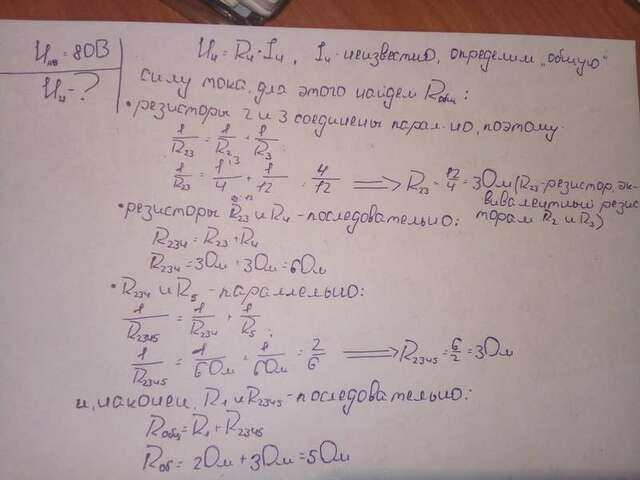 Uав = 80В
U4 - ?
U4 = R4 · I4, I4 - неизвестно, определим „общую"
силу тока, для этого найдем Rобщ:
• резисторы 2 и 3 соединены парал-но, поэтому
1/R23 = 1/R2 + 1/R3
1/R23 = 1/4 + 1/12 = 4/12 ⟹ R23 = 12/4 = 3Ом (R23 - резистор, эк-
вивалентный резис
торам R2 и R3)
• резисторы R23 и R4 - последовательно:
R234 = R23 + R4
R234 = 3Ом + 3Ом = 6Ом
• R234 и R5 - параллельно:
1/R2345 = 1/R234 + 1/R5;
1/R2345 = 1/6Ом + 1/6Ом = 2/6 ⟹ R2345 = 6/2 = 3Ом
и, наконец, R1 и R2345 - последовательно:
Rобщ = R1 + R2345
Rоб = 2Ом + 3Ом = 5Ом